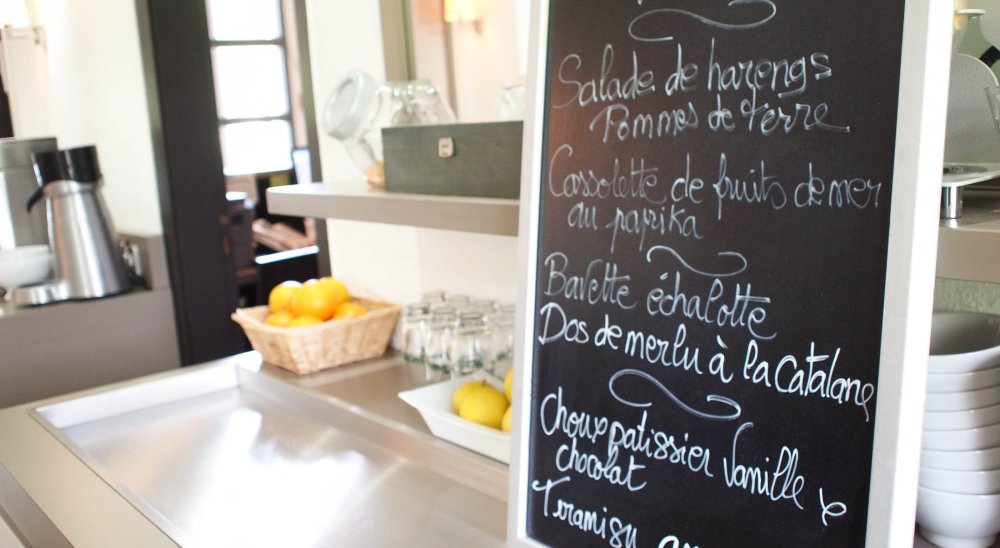 Salade de harengs
Pommes de terre
Cassolette de fruits de mer
au paprika
Bavette échalotte
Dos de merlu à la catalane
Choux patissier Vanille &
chocolat
Teramisu